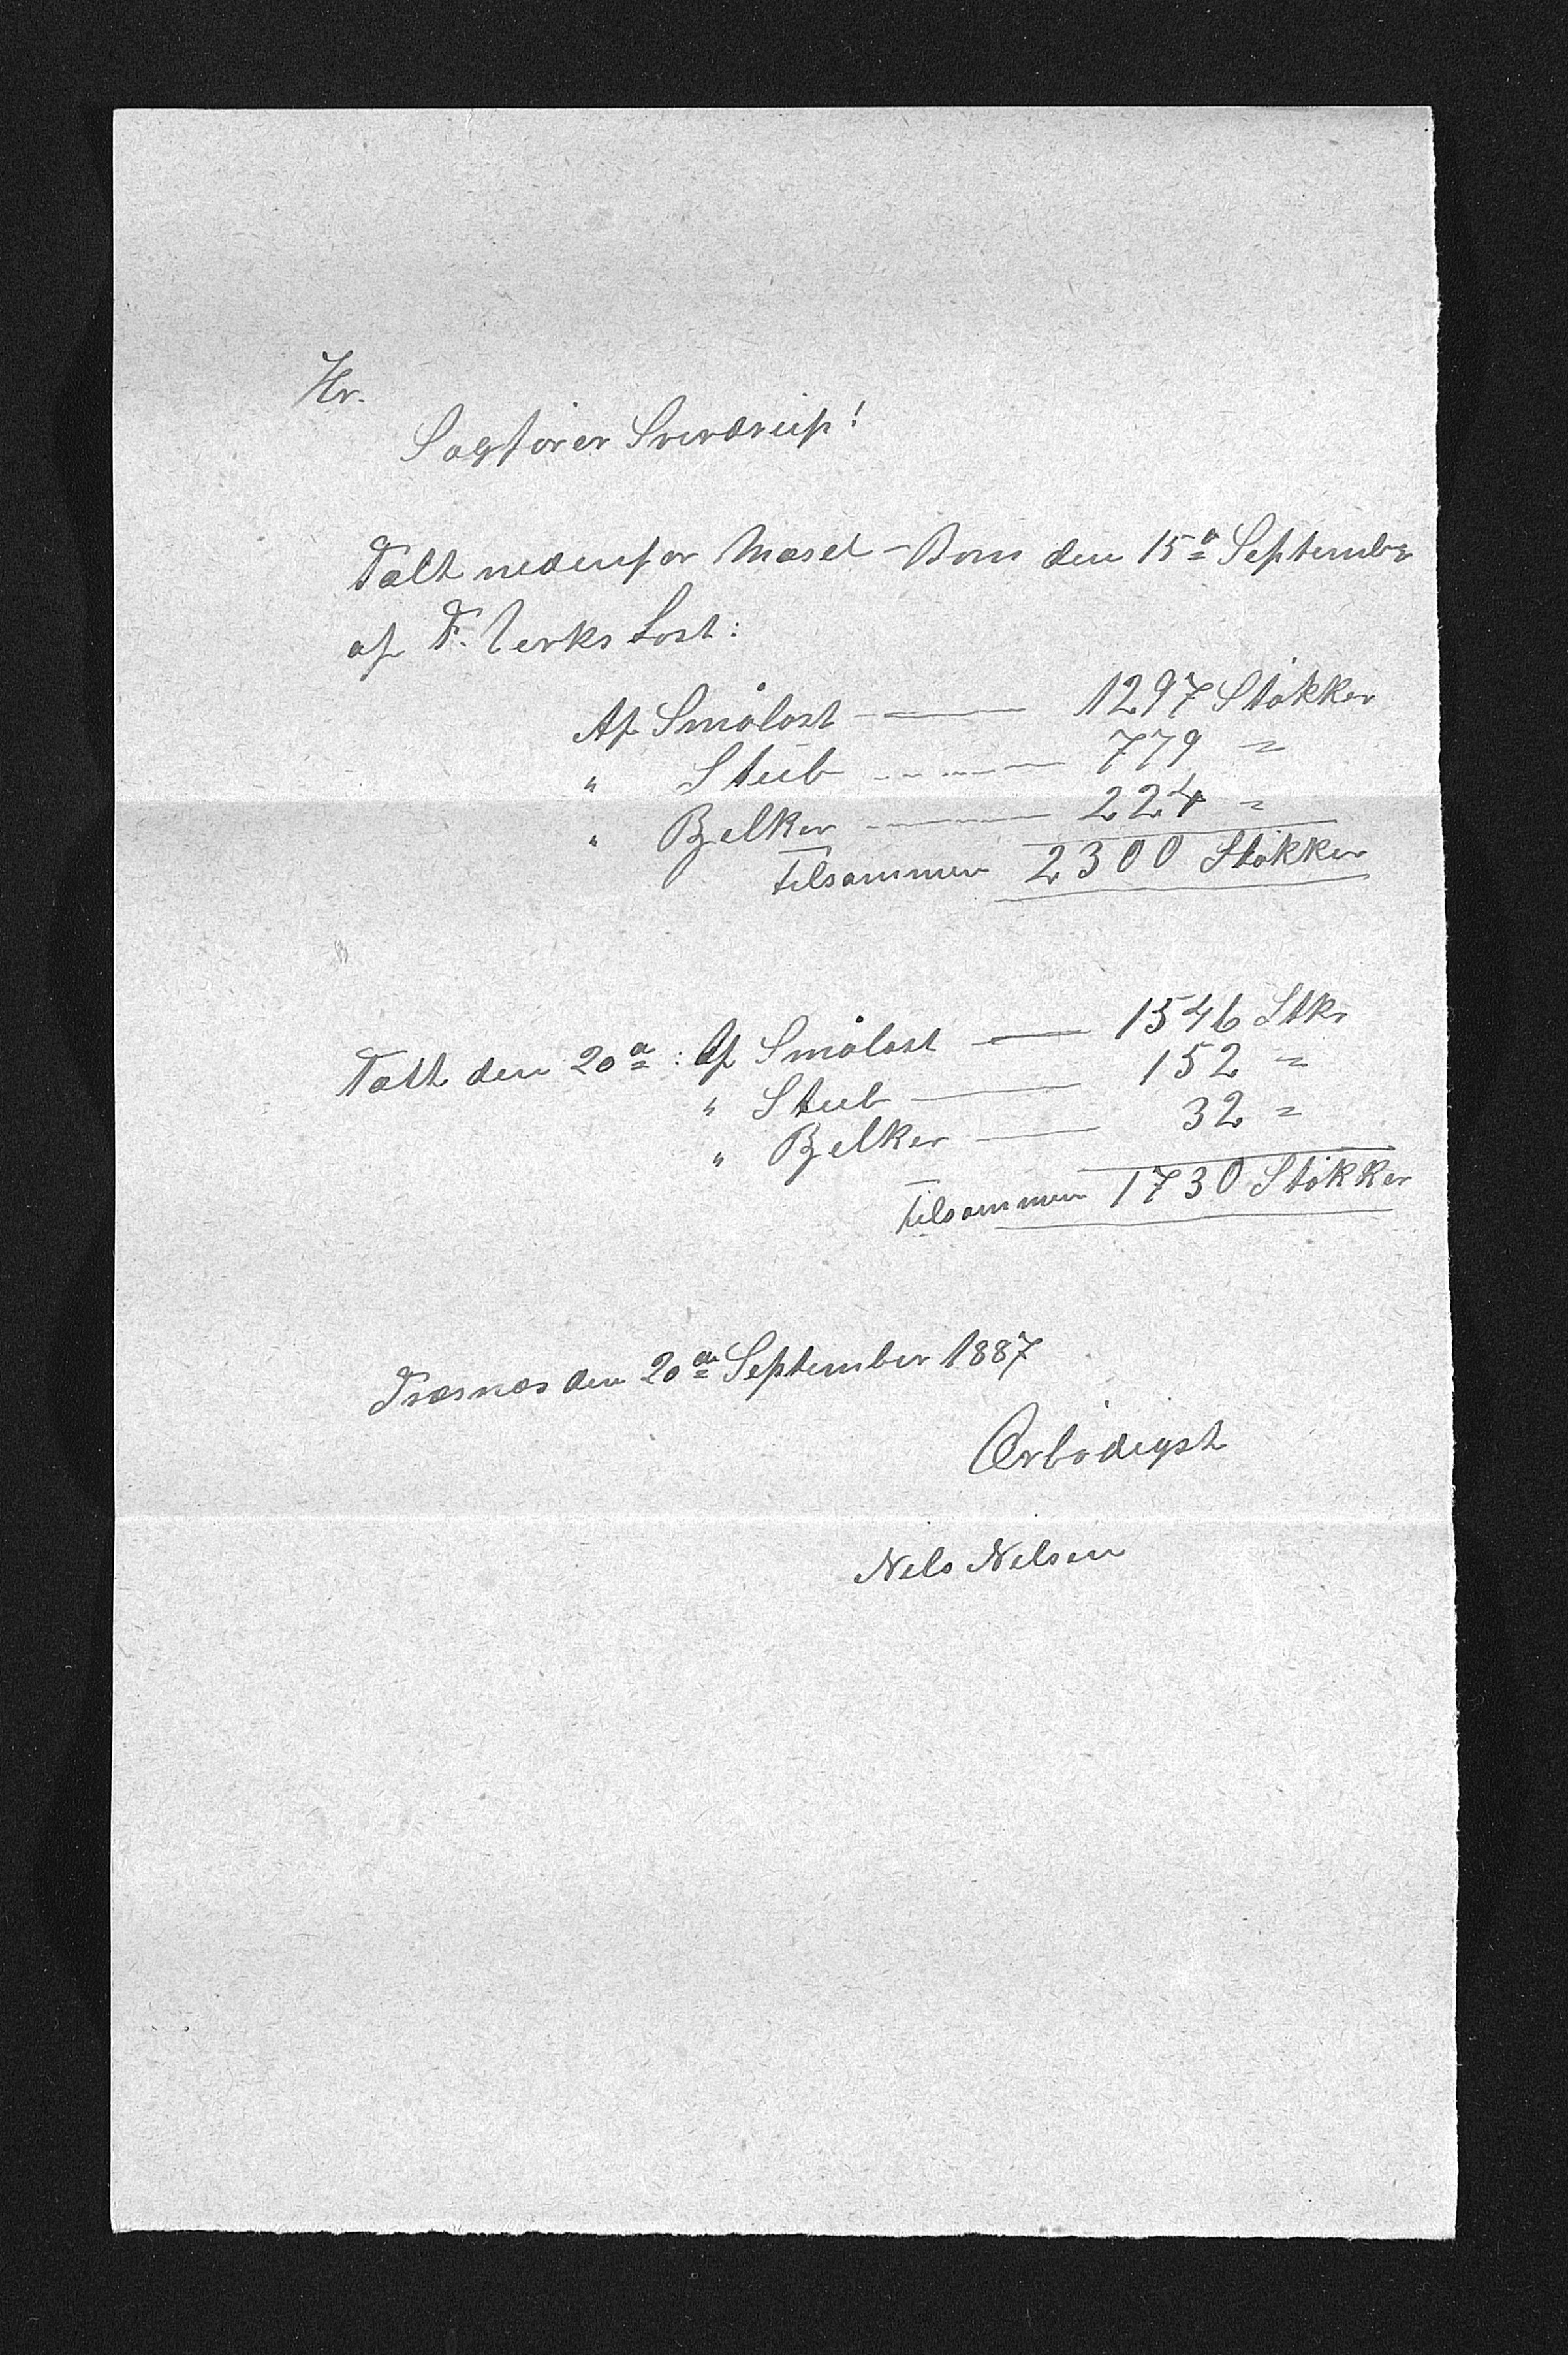 Hr.
Sagfører Sverdrup!
Talt nedenfor Mæsel-Bom den 15ᵈ September
af F. Verks Last:
Af Smålast — 1297 Støkker
" Stub — 779 "
" Bjelker — 224 "
Tilsammen 2300 Støkker
Talt den 20ᵈᵉ: Af Smålast — 1546 Stkr
" Stub — 152 "
" Bjelker — 32 "
Tilsammen 1730 Støkker
den 20ᵈᵉ September 1887
Ærbødigst
Nils Nilsen